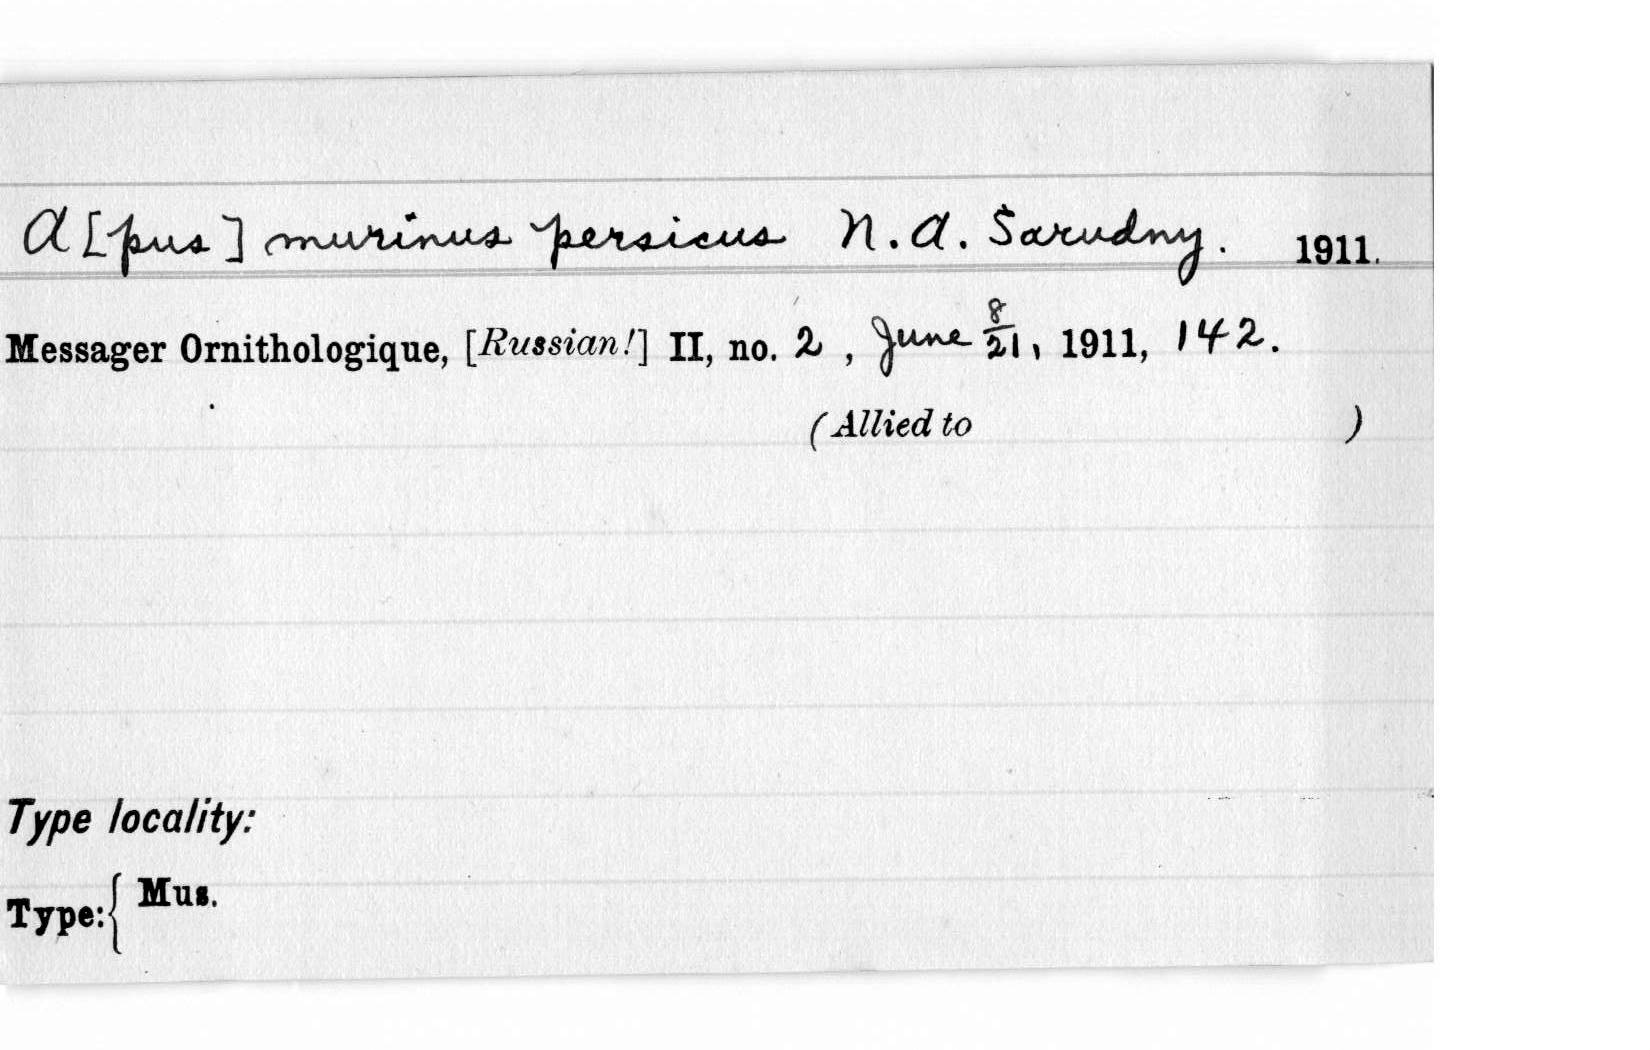 A[pus] murinus persicus N. A. Sarudny. 1911.
Messager Ornithologique, [Russian!] II, no. 2, June 8/21, 1911, 142.
(Allied to )
Type locality:
Type: { Mus.